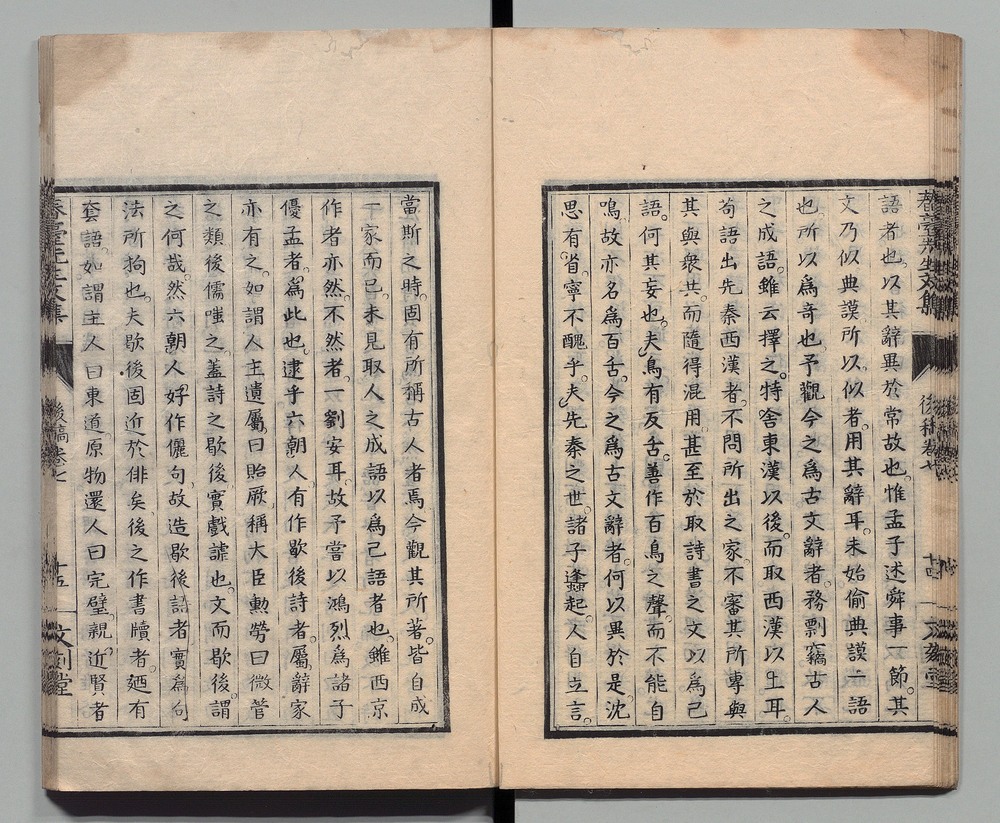 春臺先生文集
後稿卷七
十四
語者也。以其辭異於常故也。惟孟子述舜事一節。其
文乃似典謨所以似者。用其辭耳。未始偷典謨一語
也。所以爲奇也予觀今之爲古文辭者。務剽竊古人
之成語。雖云擇之。特舍東漢以後。而取西漢以上耳。
苟語出先秦西漢者。不問所出之家。不審其所專與
其與衆共。而隨得混用。甚至於取詩書之文以爲己
語。何其妄也。夫鳥有反舌。善作百鳥之聲。而不能自
鳴。故亦名爲百舌。今之爲古文辭者。何以異於是。沈
思有省。寧不醜乎。夫先秦之世。諸子蠭起。人自立言。
當斯之時。固有所稱古人者焉今觀其所著。皆自成
一家而已。未見取人之成語以爲己語者也。雖西京
作者亦然。不然者。一劉安耳。故予嘗以鴻烈爲諸子
優孟者。爲此也。逮乎六朝人有作歇後詩者。屬辭家
亦有之。如謂人主遺屬。曰貽厥。稱大臣勳勞曰微管
之類後儒嗤之。蓋詩之歇後實戲謔也。文而歇後。謂
之何哉。然六朝人好作儷句。故造歇後語者實爲句
法所拘也。夫歇後固近於俳矣。後之作書牘者。廼有
套語。如謂主人曰東道。原物還人曰完璧。親近賢者
春臺先生文集
後稿卷七
十五
文刻堂